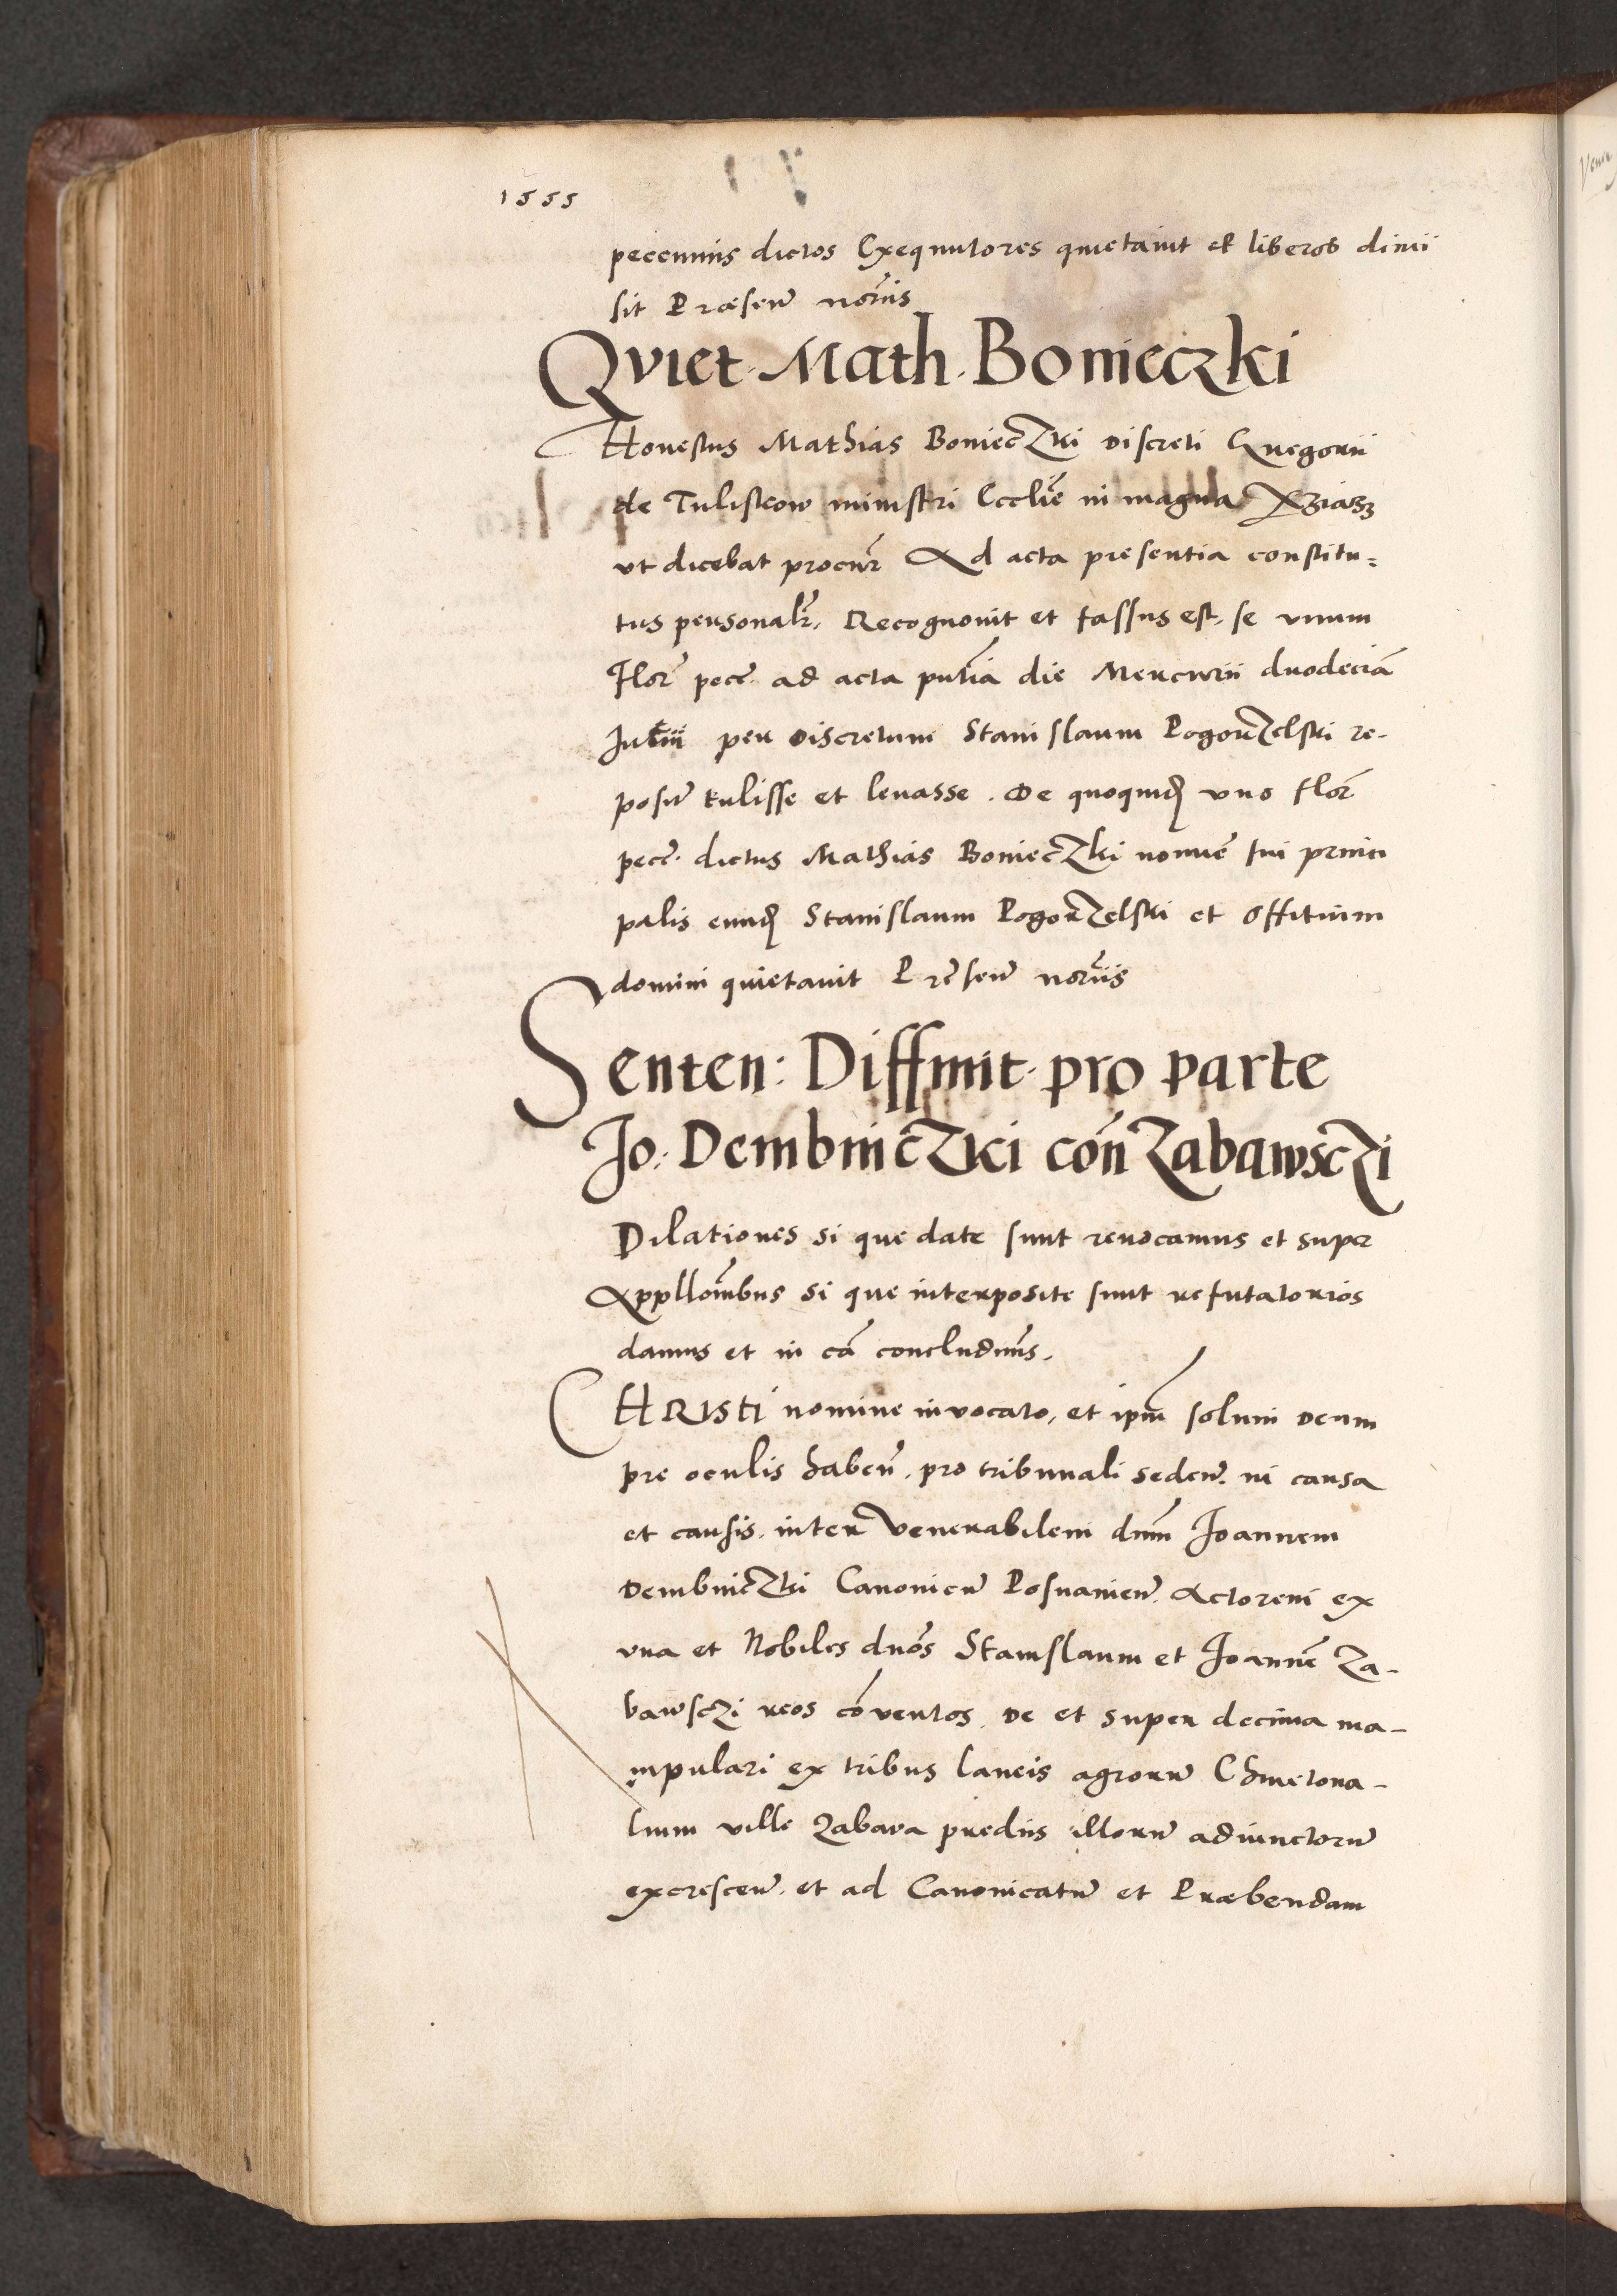 1555
pecuniis dictos Exequutores quietavit et liberos dimi
sit Præsen̄ nor̄iis
Qviet. Math. Bonieczki
Honestus Mathias Bonieczki discreti Gregorii
de Tulisscow ministri Eccliē in magna
vt dicebat procur̄ Ad acta presentia constitu=
tus personalr̄, Recognovit et fassus est, se vnum
Flor̄ pecc̄ ad acta pn̄tia die Mercurii duodecīa
Junii per discretum Stanislaum Pogorzelski re-
positū tulisse et levasse. De quoquidē vno flor̄
pecc̄. dictus Mathias Bonieczki nomiē sui princi
palis eundē Stanislaum Pogorzelski et Offitium
domini quietavit Prēsen̄ nor̄iis
Senten: Diffinit. pro parte
Jo: Dembniczki con̄ Zabawsczi
Dilationes si que date sunt revocamus et super
Appllōnibus si que interposite sunt refutatorios
damus et in cā concludim̄s.
CHRISTI nomine invocato, et ipm̄ solum deum
pre oculis haben̄. pro tribunali seden̄. in causa
et causis. inter Venerabilem dnm̄ Joannem
Dembniczki Canonicū Posnanien̄. Actorem ex
vna et Nobiles dnōs Stanislaum et Joannē Za-
bawsczi reos cōventos. de et super decima ma-
nipulari ex tribus laneis agrorū Chmetona-
lium ville Zabava prediis illorū adiunctorū
excrescen̄. et ad Canonicatū et Præbendam